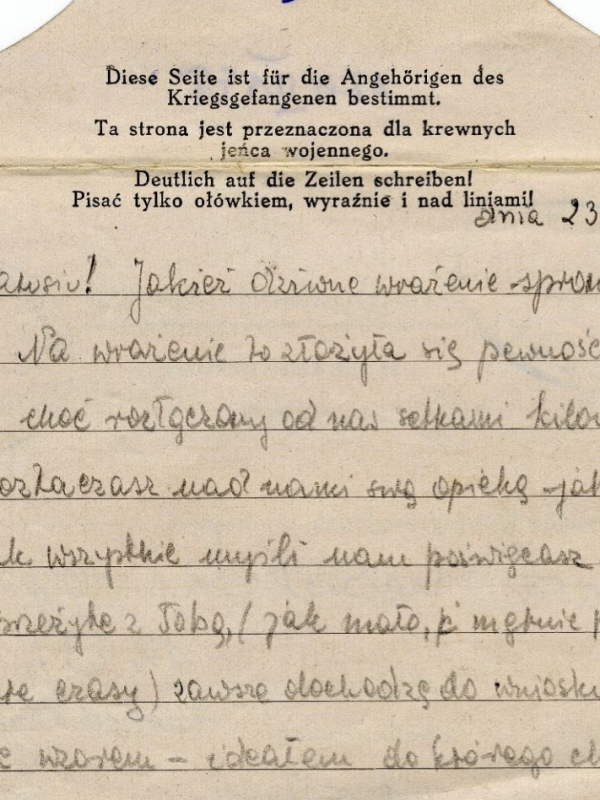 Diese Seite ist für die Angehörigen des
Kriegsgefangenen bestimmt.
Ta strona jest przeznaczona dla krewnych
jeńca wojennego.
Deutlich auf die Zeilen schreiben!
Pisać tylko ołówkiem, wyraźnie i nad linjami!
dnia 23
atusiu! Jakież dziwne wrażenie spraw
Na wrażenie to złożyła się pewność
choć rozłączony od nas setkami kilo
oztaczasz nad nami swą opiekę jak
k wszystkie myśli nam poświęcasz
przeżyte z Tobą, (jak mało, i mętnie p
te czasy) zawsze dochodzę do wniosku
wzorem - ideałem do którego ch